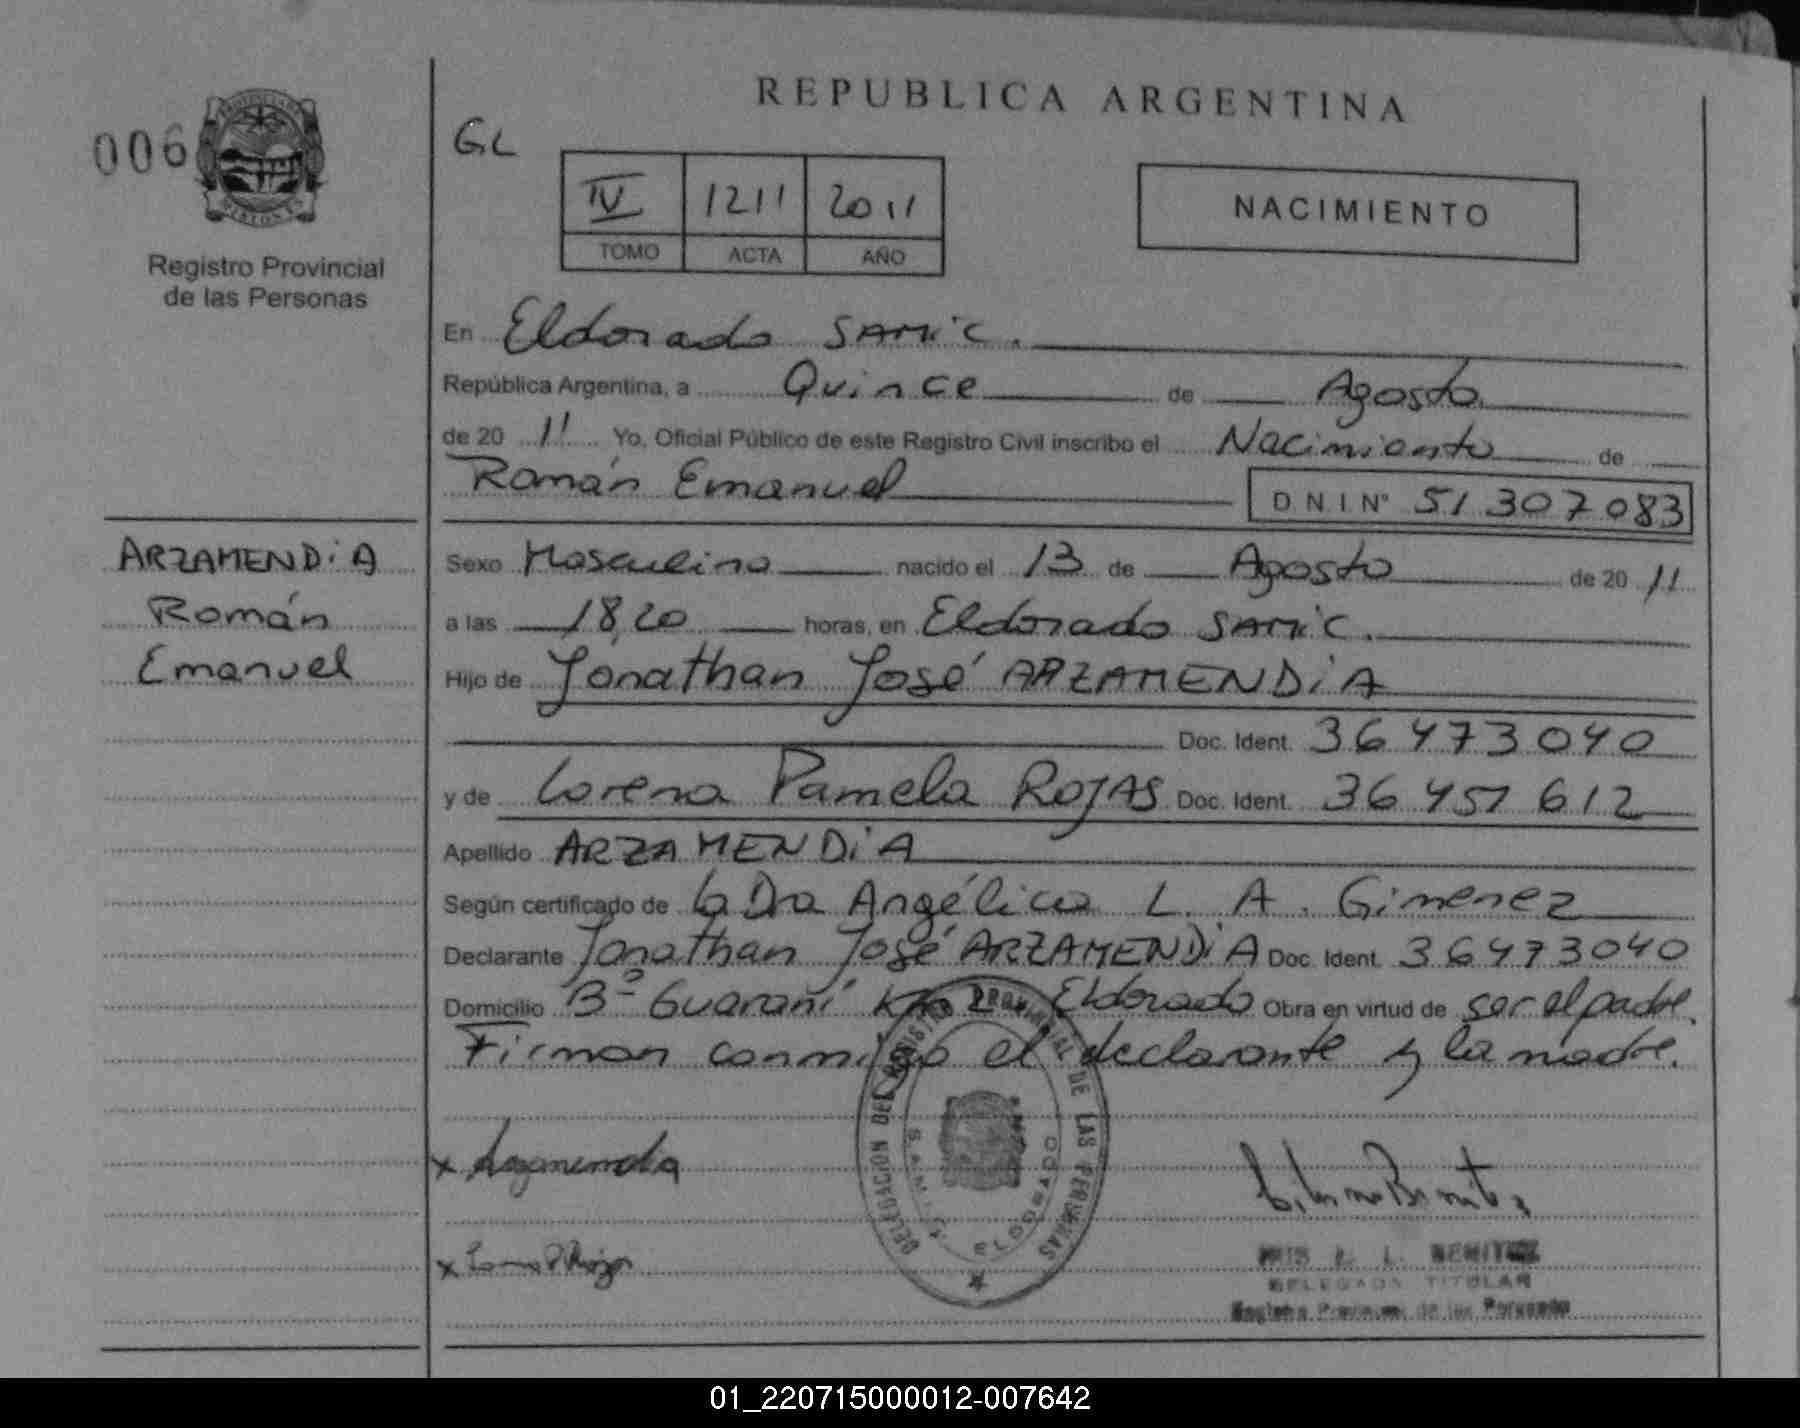 REPUBLICA ARGENTINA
006
PROVINCIA DE MISIONES
Registro Provincial
de las Personas
GL
IV 1211 2011
TOMO ACTA AÑO
NACIMIENTO
En Eldorado SAMiC.
República Argentina, a Quince de Agosto
de 20 11 Yo, Oficial Público de este Registro Civil inscribo el Nacimiento de
Román Emanuel D N I Nº 51 307 083
ARZAMENDiA
Román
Emanuel
Sexo Masculino nacido el 13 de Agosto de 20 11
a las 18,20 horas, en Eldorado SAMiC.
Hijo de Jonathan José ARZAMENDiA
Doc. Ident. 36 473 040
y de Lorena Pamela ROJAS Doc. Ident. 36 451 612
Apellido ARZAMENDiA
Según certificado de la Dra Angélica L. A. Gimenez
Declarante Jonathan José ARZAMENDiA Doc. Ident. 36473040
Domicilio Bº Guaraní Km 2 Eldorado Obra en virtud de ser el padre.
Firman conmigo el declarante y la madre.
DELEGACION DEL REGISTRO PROVINCIAL DE LAS PERSONAS
ELDORADO
x Arzamendia
x P Rojas
L. BENITEZ
DELEGADA TITULAR
Registro Provincial de las Personas
01_220715000012-007642